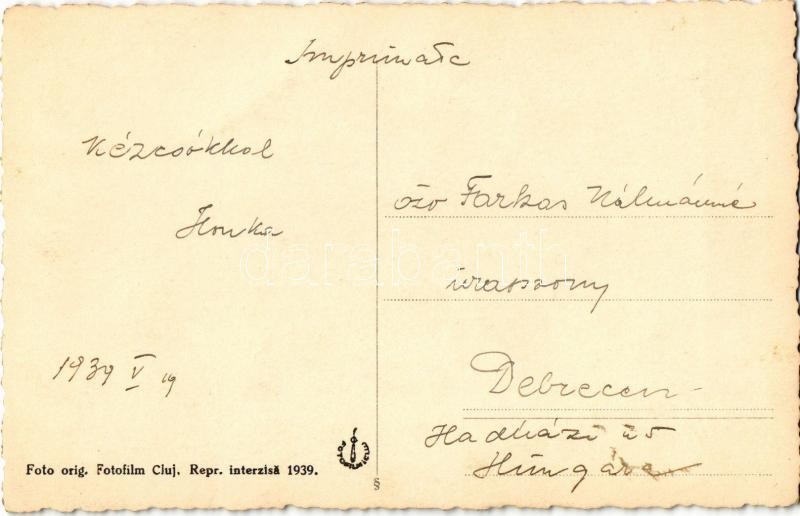 Imprimate
Kézcsókkal
Ilonka
1939 V 19
özv Farkas Kálmánné
úrasszony
Debrecen
Hadházi u 5
Hungára
Foto orig. Fotofilm Cluj. Repr. interzisă 1939.
FOTOFILM CLUJ
§
darabanth